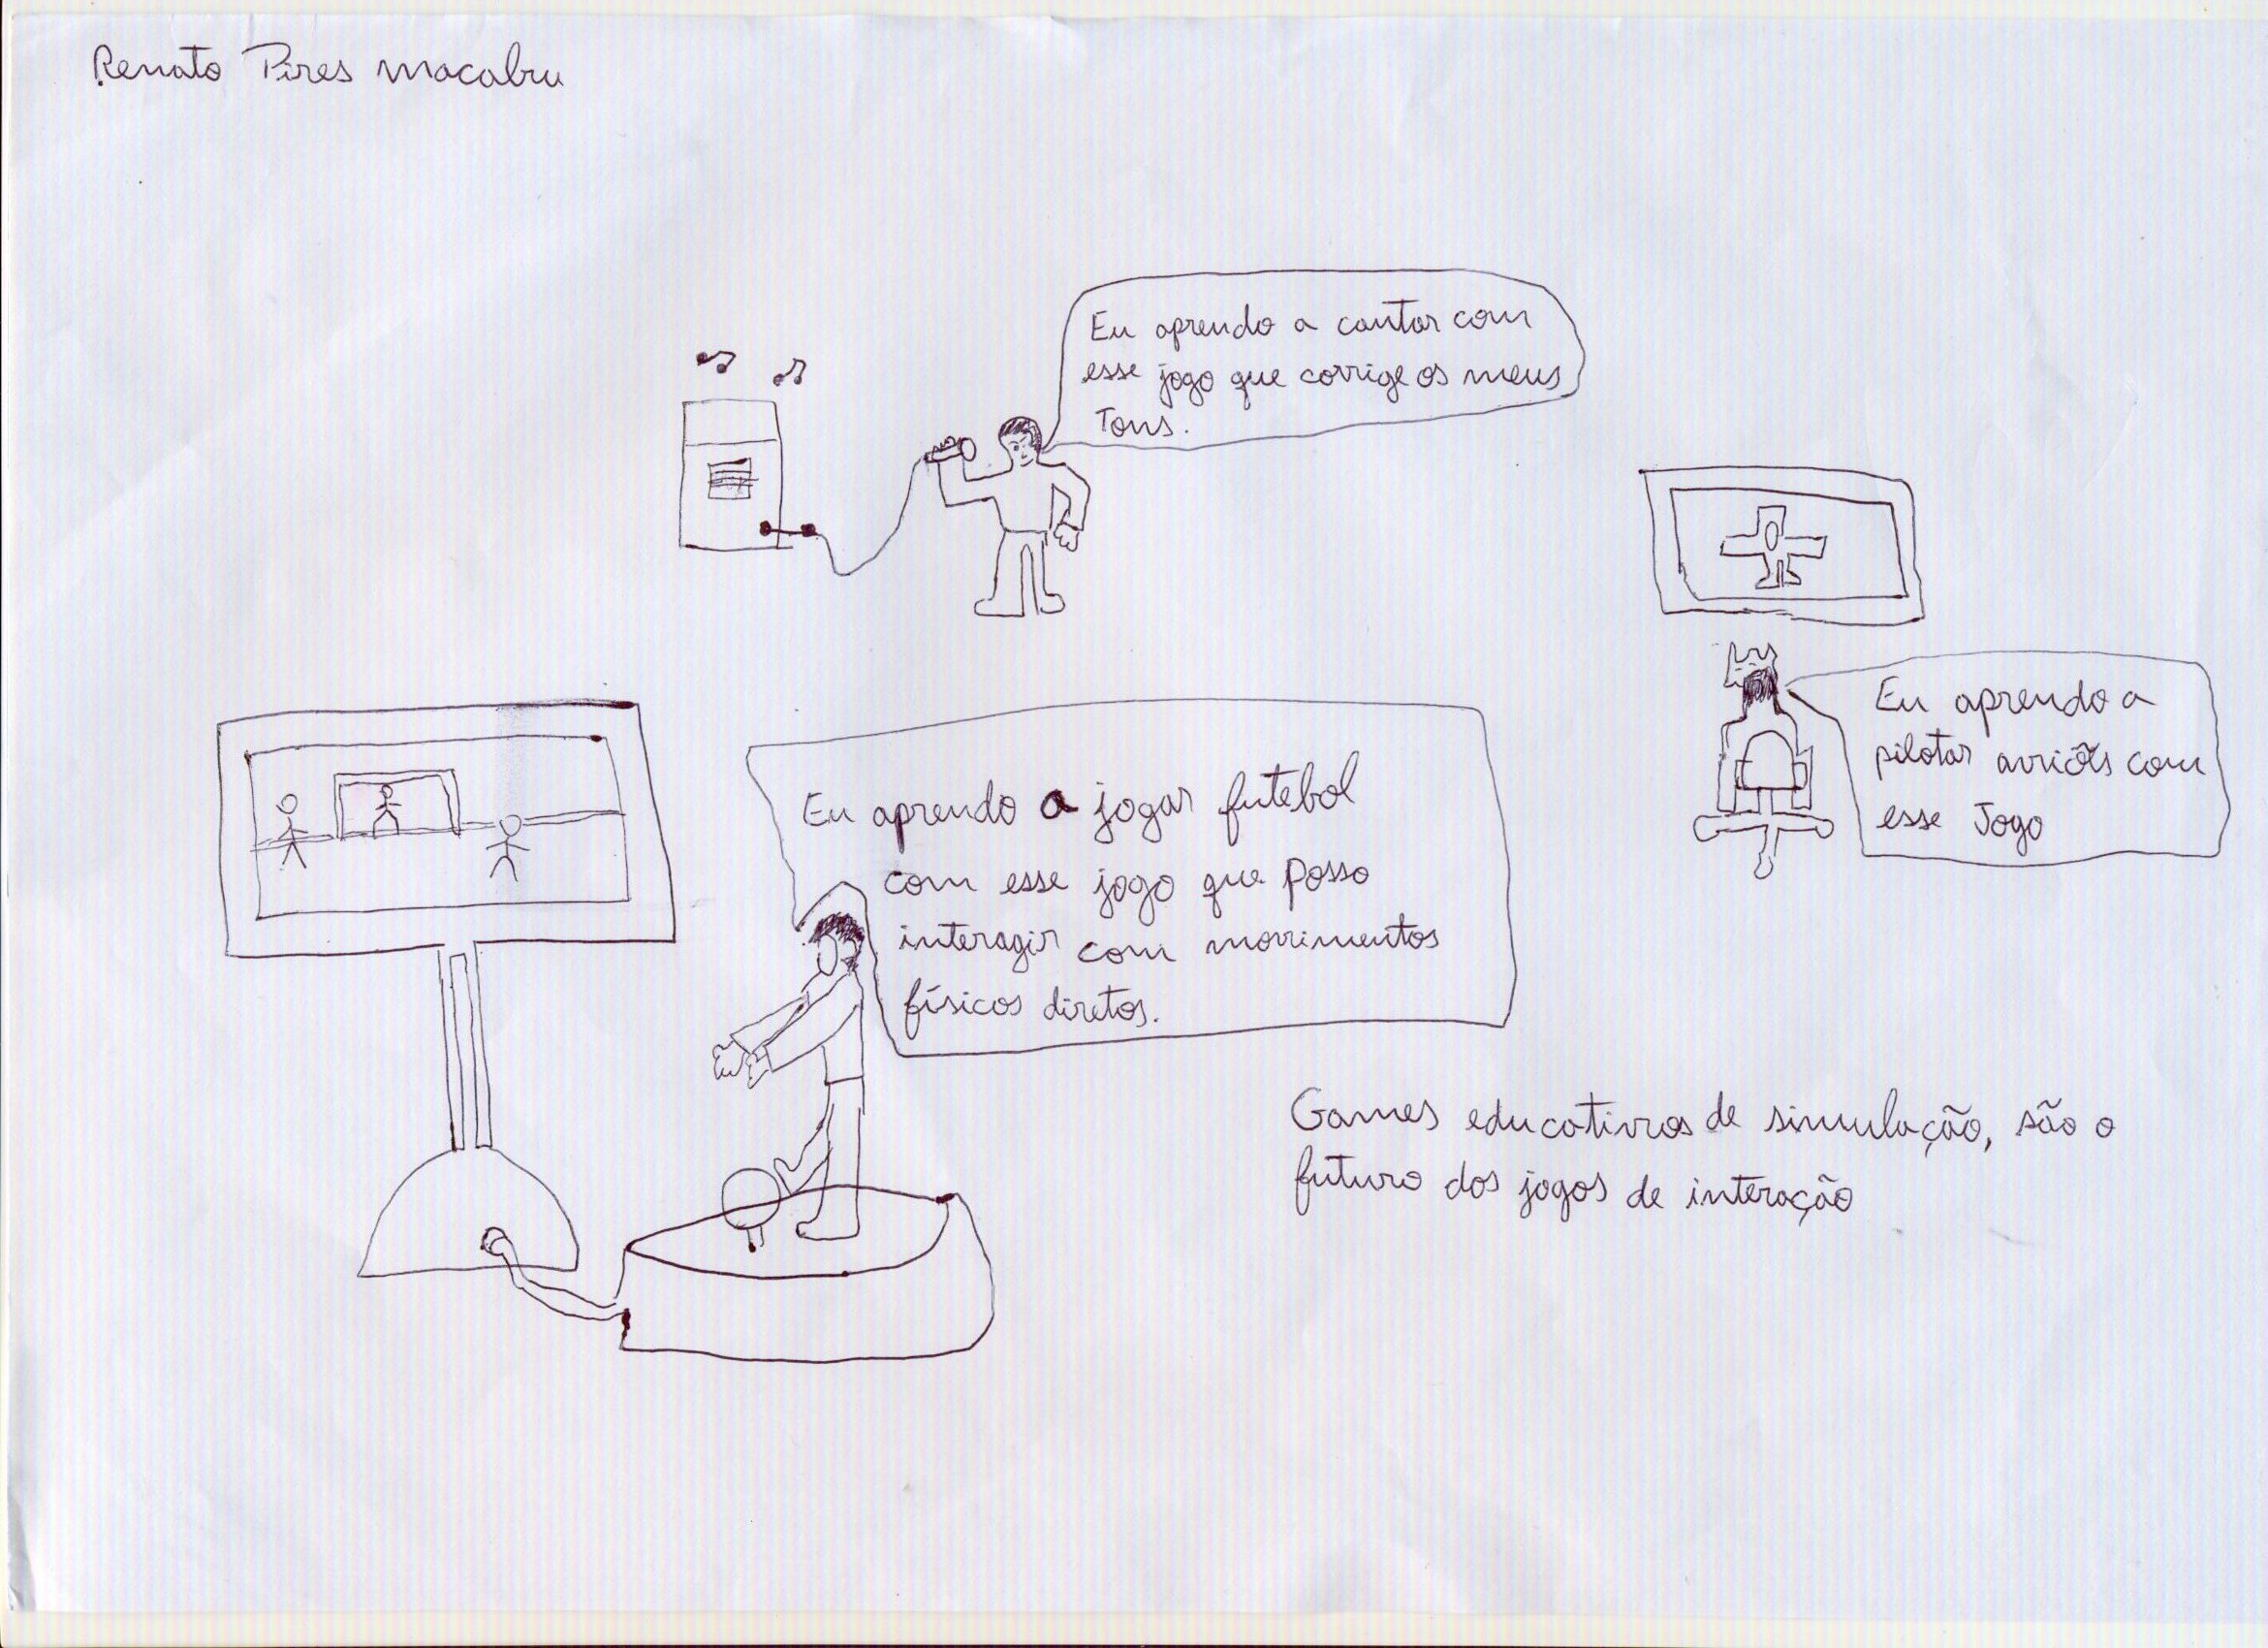 Renato Pires Macabu
Eu aprendo a cantar com
esse jogo que corrige os meus
Tons.
Eu aprendo a
pilotar aviões com
esse Jogo
Eu aprendo a jogar futebol
com esse jogo que posso
interagir com movimentos
físicos diretos.
Games educativos de simulação, são o
futuro dos jogos de interação